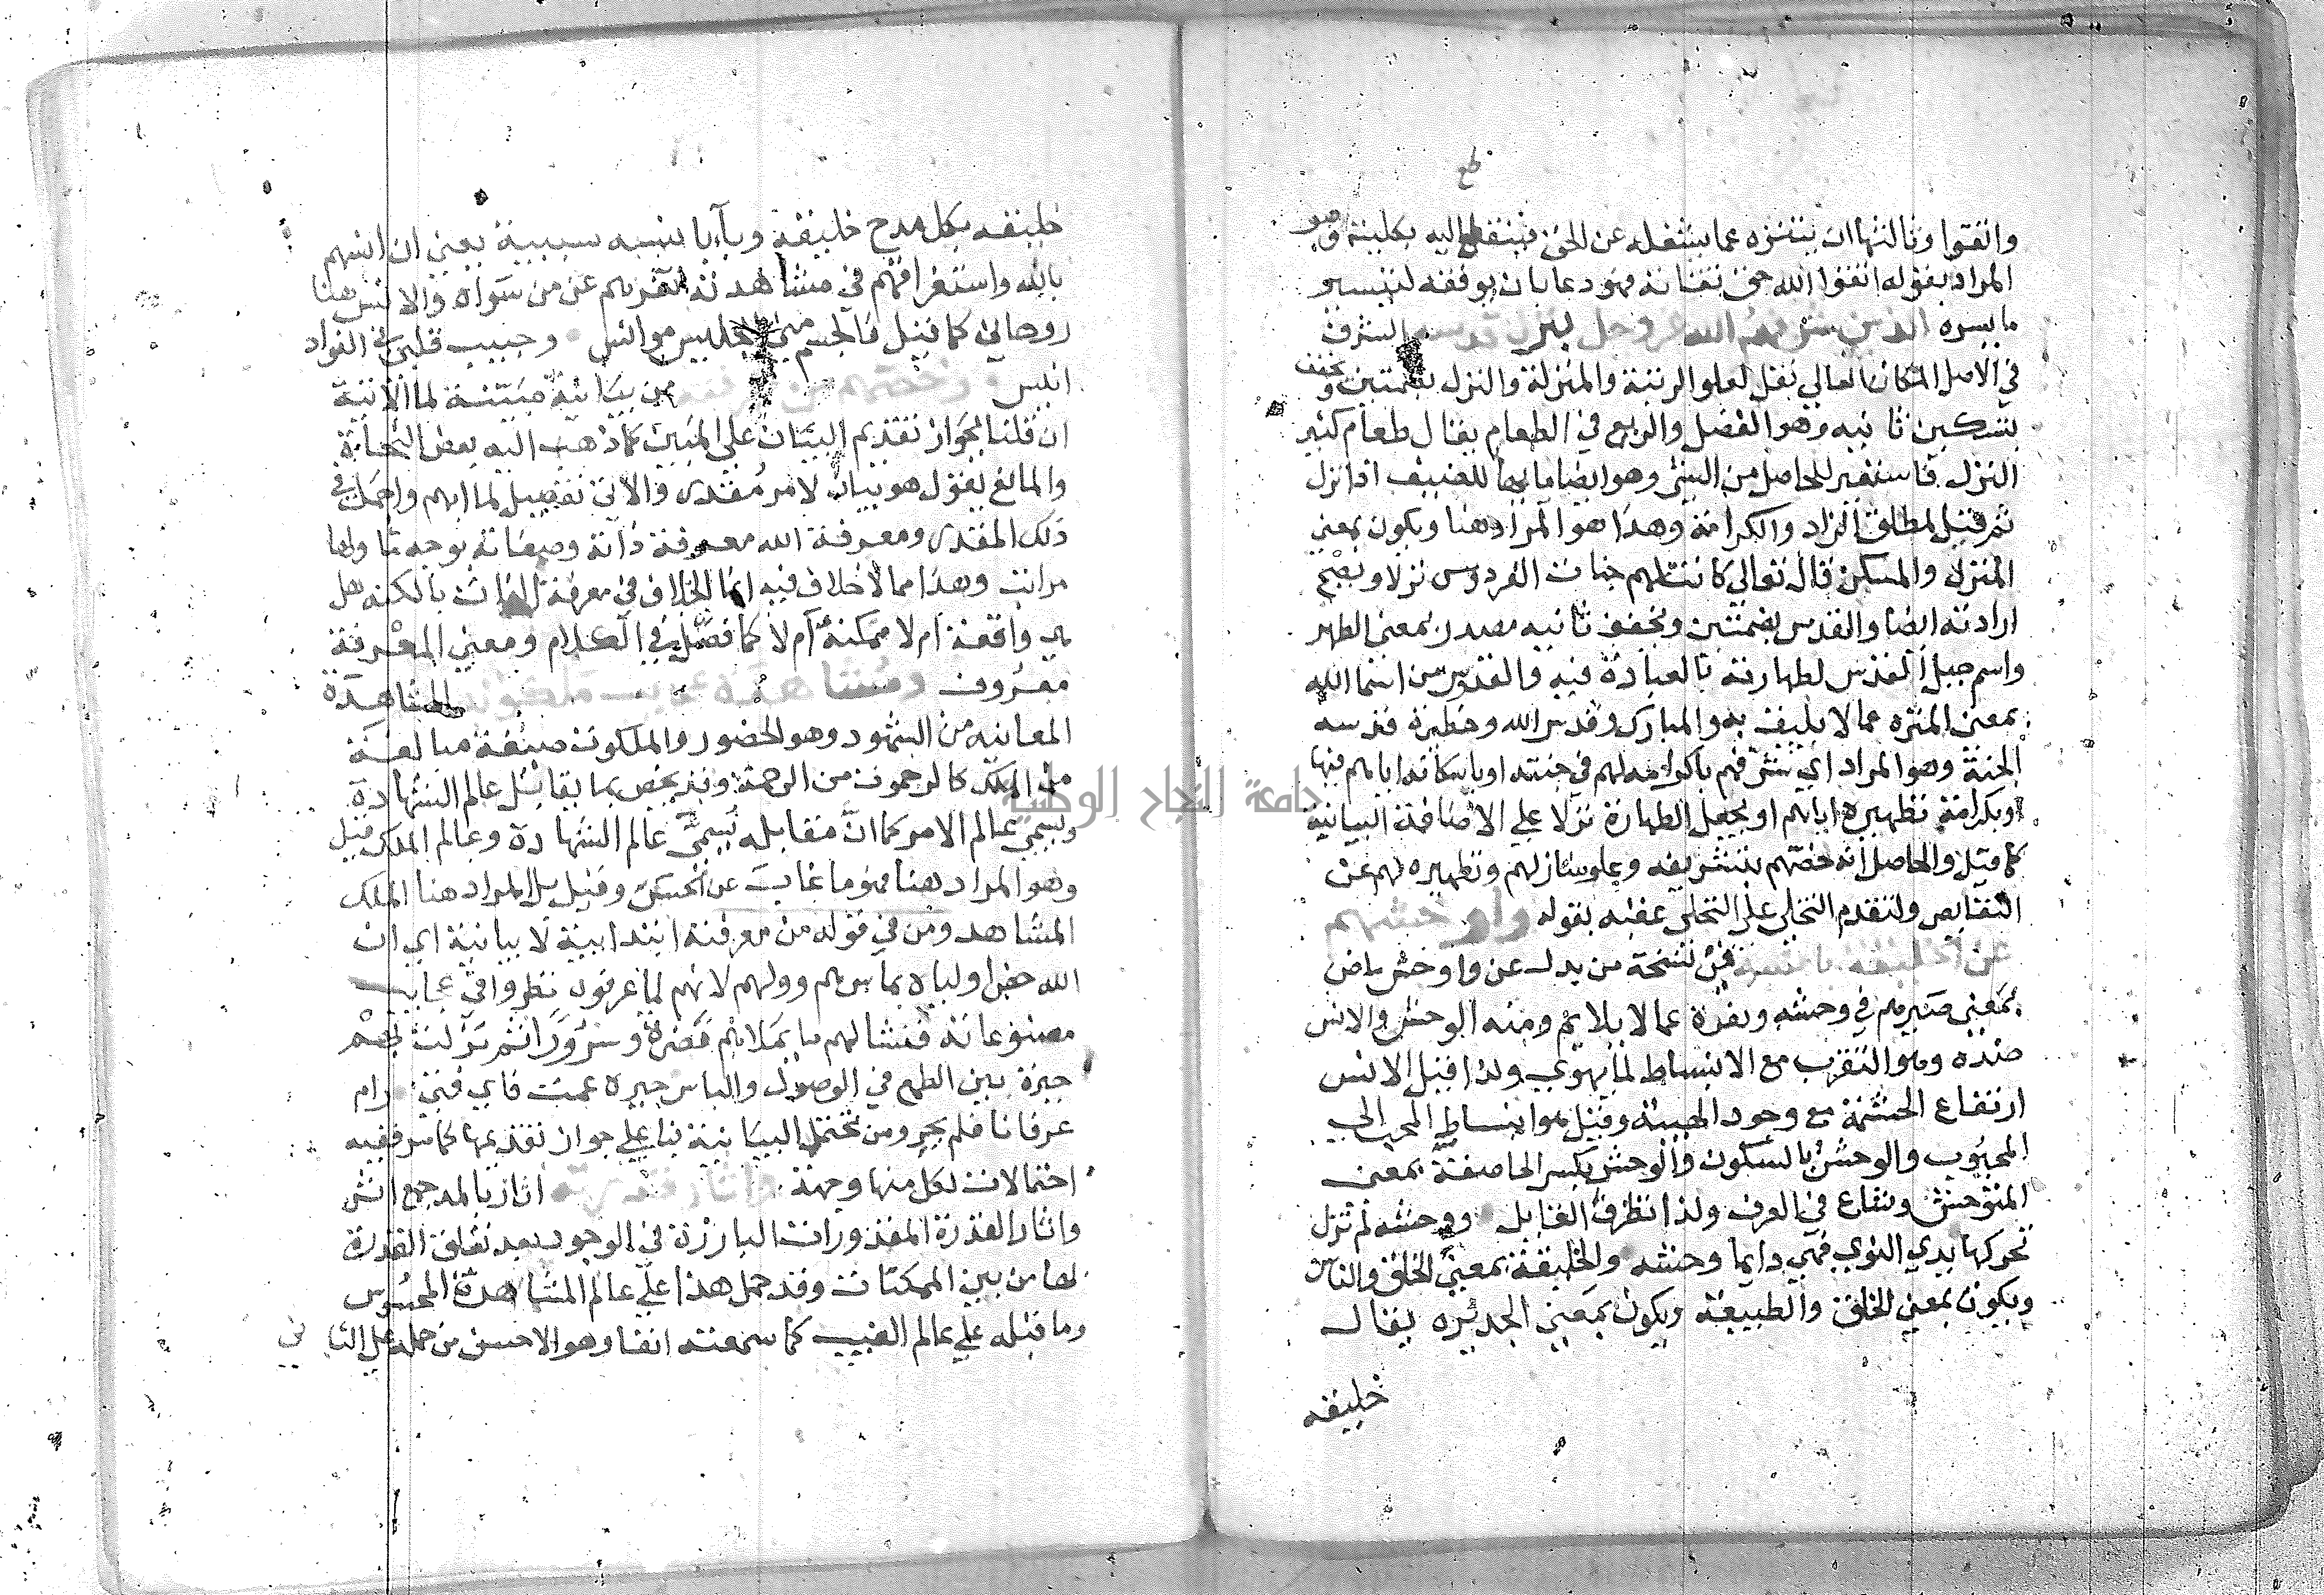 واتقوا وثالثها ان يتنزه عما يشغله عن الحق فينقطع اليه بكليته وهو
المراد بقوله اتقوا الله حق تقاته فهو دعا بان يوفقه لتيسير
ما يسره الذين شرفهم الله عز وجل بنزل قدسه الشرف
في الاصل المكان العالي نقل لعلو الرتبة والمنزلة والنزل بضمتين وتخفف
بتسكين ثانيه وهو الفضل والريع في الطعام يقال طعام كثير
النزل فاستعير للحاصل من الشي وهو ايضا ما يهيأ للضيف اذا نزل
ثم قيل لمطلق الزاد والكرامة وهذا هو المراد هنا ويكون بمعني
المنزل والمسكن قال تعالى كانت لهم جنات الفردوس نزلا ويصح
ارادته ايضا والقدس بضمتين وتخفف ثانيه مصدر بمعنى الطهر
واسم جبل القدس لطهارته بالعبادة فيه والقدوس من اسما الله
بمعنى المنزه عما لا يليق به والمبارك وقدس الله وحظيرة قدسه
الجنة وهو المراد اي شرفهم باكرامه لهم في جنته او باسكانه اياهم فيها
او بكرامة تطهيره اياهم او بجعل الطهارة نزلا علي الاضافة البيانية
كما قيل والحاصل انه خصهم بتشريفه وعلو منازلهم وتطهيره لهم عن
النقايص ولتقدم التخلي على التحلي عقبه بقوله واوحشهم
عن الخليقة بانسه في نسخة من بدل عن واوحش ماض
بمعنى صيرهم في وحشه ونفرة عما لا يلايم ومنه الوحش والانس
ضده وهو التقرب مع الانبساط لما يهوي ولذا قيل الانس
ارتفاع الحشمة مع وجود الهيبة وقيل هو انبساط المحب الي
المحبوب والوحش بالسكون والوحش بكسر الحا صفة بمعنى
المتوحش وشاع في العرف ولذا نظرف القايل ووحشه لم تزل
تحركها يدي النوي فهي دايما وحشه والخليقة بمعني الخلق والناس
ويكون بمعني الخلق والطبيعة ويكون بمعني الجديره يقال
خليقه
خليقه بكل مدح خليقة وبا بانسه سببية يعني ان انسهم
بالله واستغراقهم في مشاهدته نفرهم عن من سواه والانس هنا
روحاني كما قيل فالجسم مني للجليس موانس وحبيب قلبي في الفواد
انيس وخصهم من معرفته من بيانية مبينة لما الاتية
ان قلنا بجواز تقديم البيان على المبين كما ذهب اليه بعض النحاة
والمانع يقول هو بيان لامر مقدر والاتي تفصيل لما ابهم واجمل في
ذلك المقدر ومعرفة الله معرفة ذاته وصفاته بوجه ما ولها
مراتب وهذا مما لا خلاف فيه انما الخلاف في معرفة الذات بالكنه هل
هي واقعة ام لا ممكنة ام لا كما فصل في الكلام ومعني المعرفة
معروف ومشاهدة عجايب ملكوته المشاهدة
المعاينه من الشهود وهو الحضور والملكوت صيغة مبالغة
من الملك كالرحموت من الرحمة وقد يخص بما يقابل عالم الشهادة
ويسمي عالم الامر كما ان مقابله يسمى عالم الشهادة وعالم الملك قيل
وهو المراد هنا فهو ما غاب عن الحس وقيل بل المراد هنا الملك
المشاهد ومن في قوله من معرفته ابتدايية لا بيانية اي ان
الله خص اولياه بما سرهم وولههم لانهم لما عرفوه نظروا في عجايب
مصنوعاته فنشا لهم ما يملاهم مسرة وسرورا ثم نزلت بهم
حيرة بين الطمع في الوصول والياس حيرة عمت فاي فتى رام
عرفانا فلم يحر ومن تحتمل البيانية بنا علي جواز تقديمها كما مر ففيه
احتمالات لكل منها وجهة واثار قدرته اثار بالمد جمع اثر
واثار القدرة المقدورات البارزة في الوجود بعد تعلق القدرة
لها من بين الممكنات وقد حمل هذا علي عالم المشاهدة المحسوس
وما قبله علي عالم الغيب كما سمعته انفا وهو الاحسن من حمله علي الثاني
جامعة النجاح الوطنية